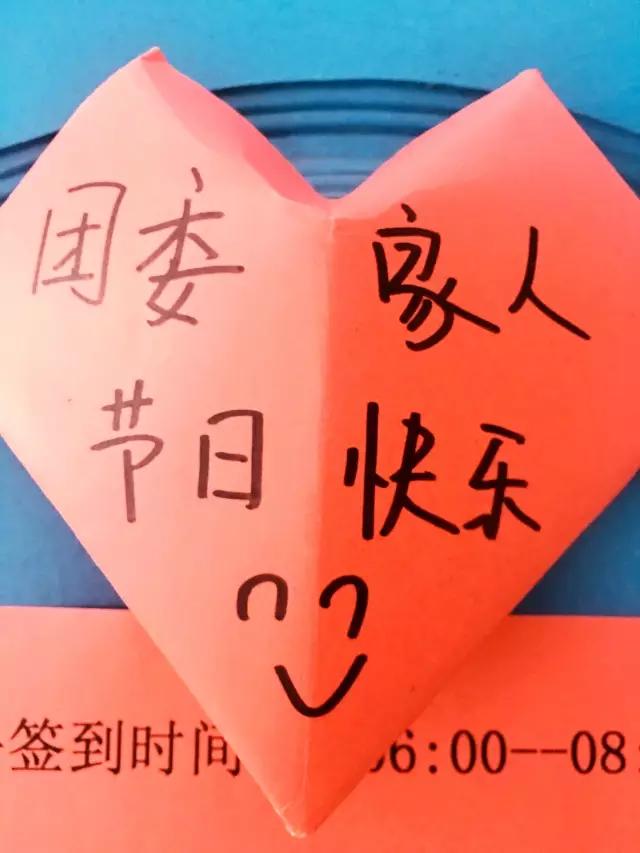 团委 家人
节日快乐
签到时间 06:00--08: